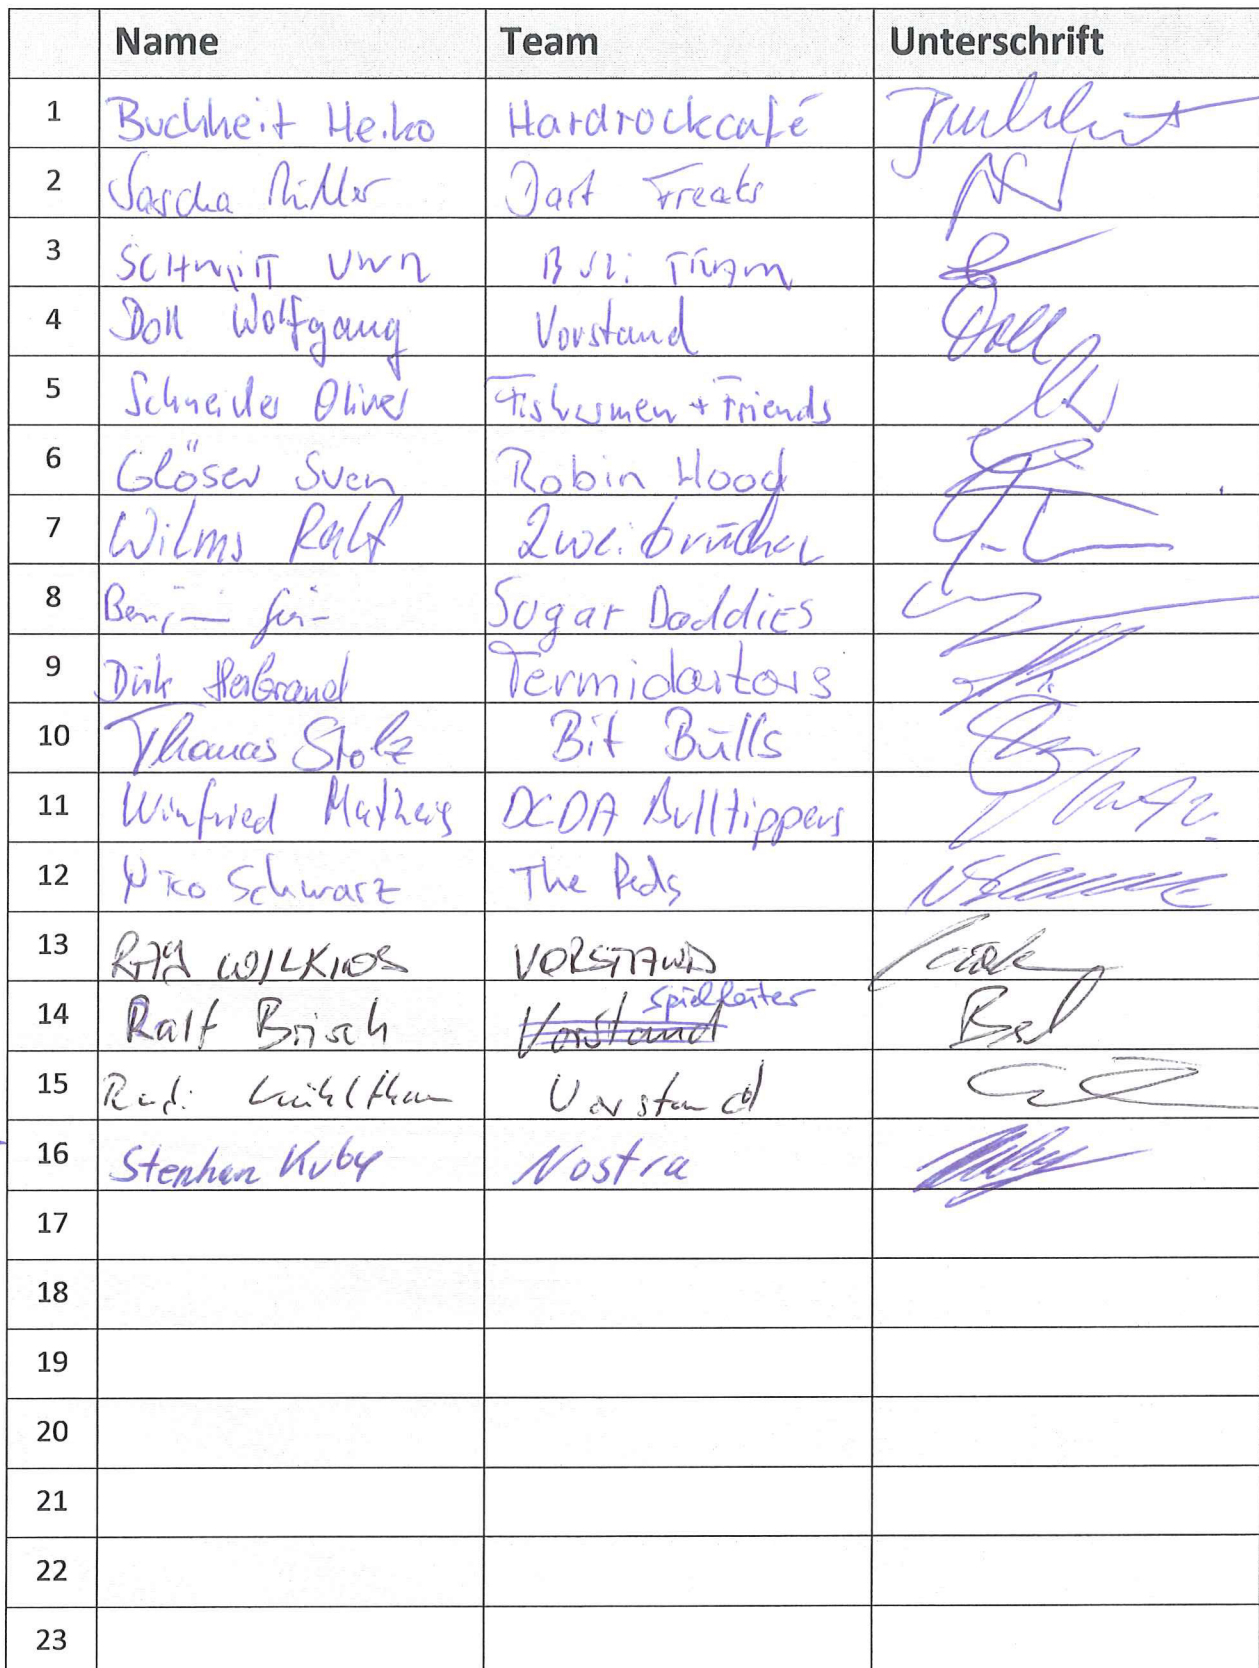 Name Team Unterschrift
1 Buchheit Heiko Hardrockcafé
2 Sascha Müller Dart Freaks
3 SCHMITT UWE
4 Doll Wolfgang Vorstand Doll
5 Schneider Oliver Fishermen + Friends
6 Glöser Sven Robin Hood
7 Wilms Ralf Zweibrücker
8 Sugar Daddies
9 Dirk Herbrand Termidartors
10 Thomas Stolz Bit Bulls
11 Winfried Matheis DCDA Bulltippers
12 Nico Schwarz The Reds
13 RAY WILKINS VORSTAND
Spielleiter
14 Ralf Brisch Vorstand
15 Rudi Vorstand
16 Stephan Kuby Nostra
17
18
19
20
21
22
23